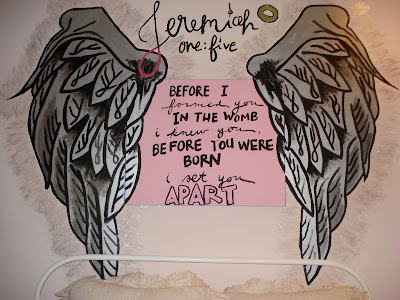 Jeremiah
one:five
BEFORE I
formed you
IN THE WOMB
i knew you,
BEFORE YOU WERE
BORN
i set you
APART